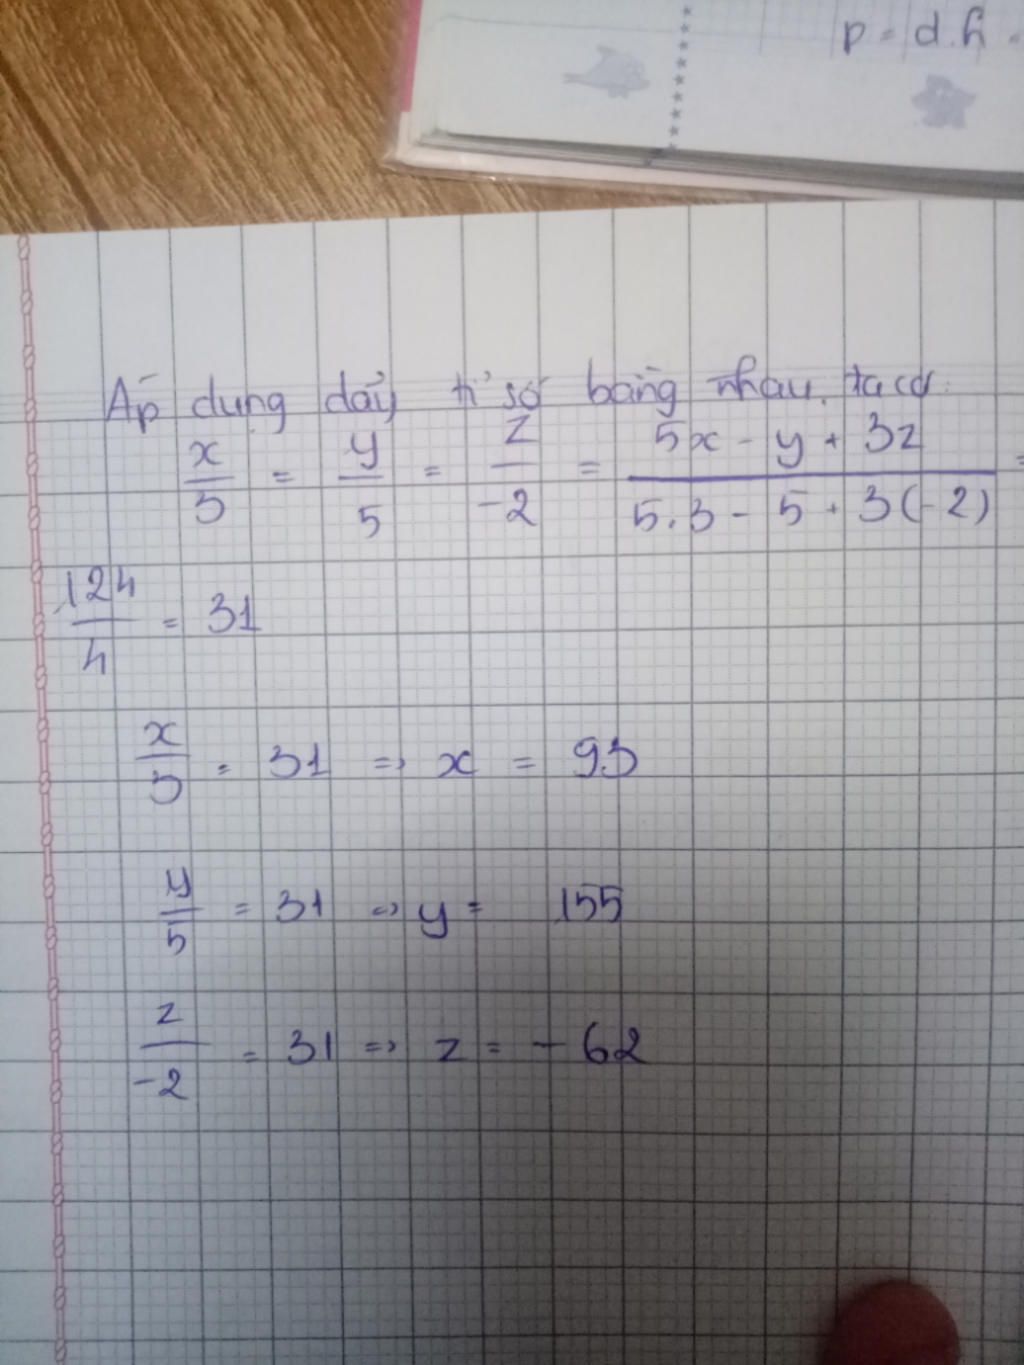 p = d.h.
Áp dụng dãy tỉ số bằng nhau, ta có:
x/3 = y/5 = z/-2 = (5x - y + 3z)/(5.3 - 5 + 3(-2)) =
124/4 = 31
x/3 = 31 => x = 93
y/5 = 31 => y = 155
z/-2 = 31 => z = -62